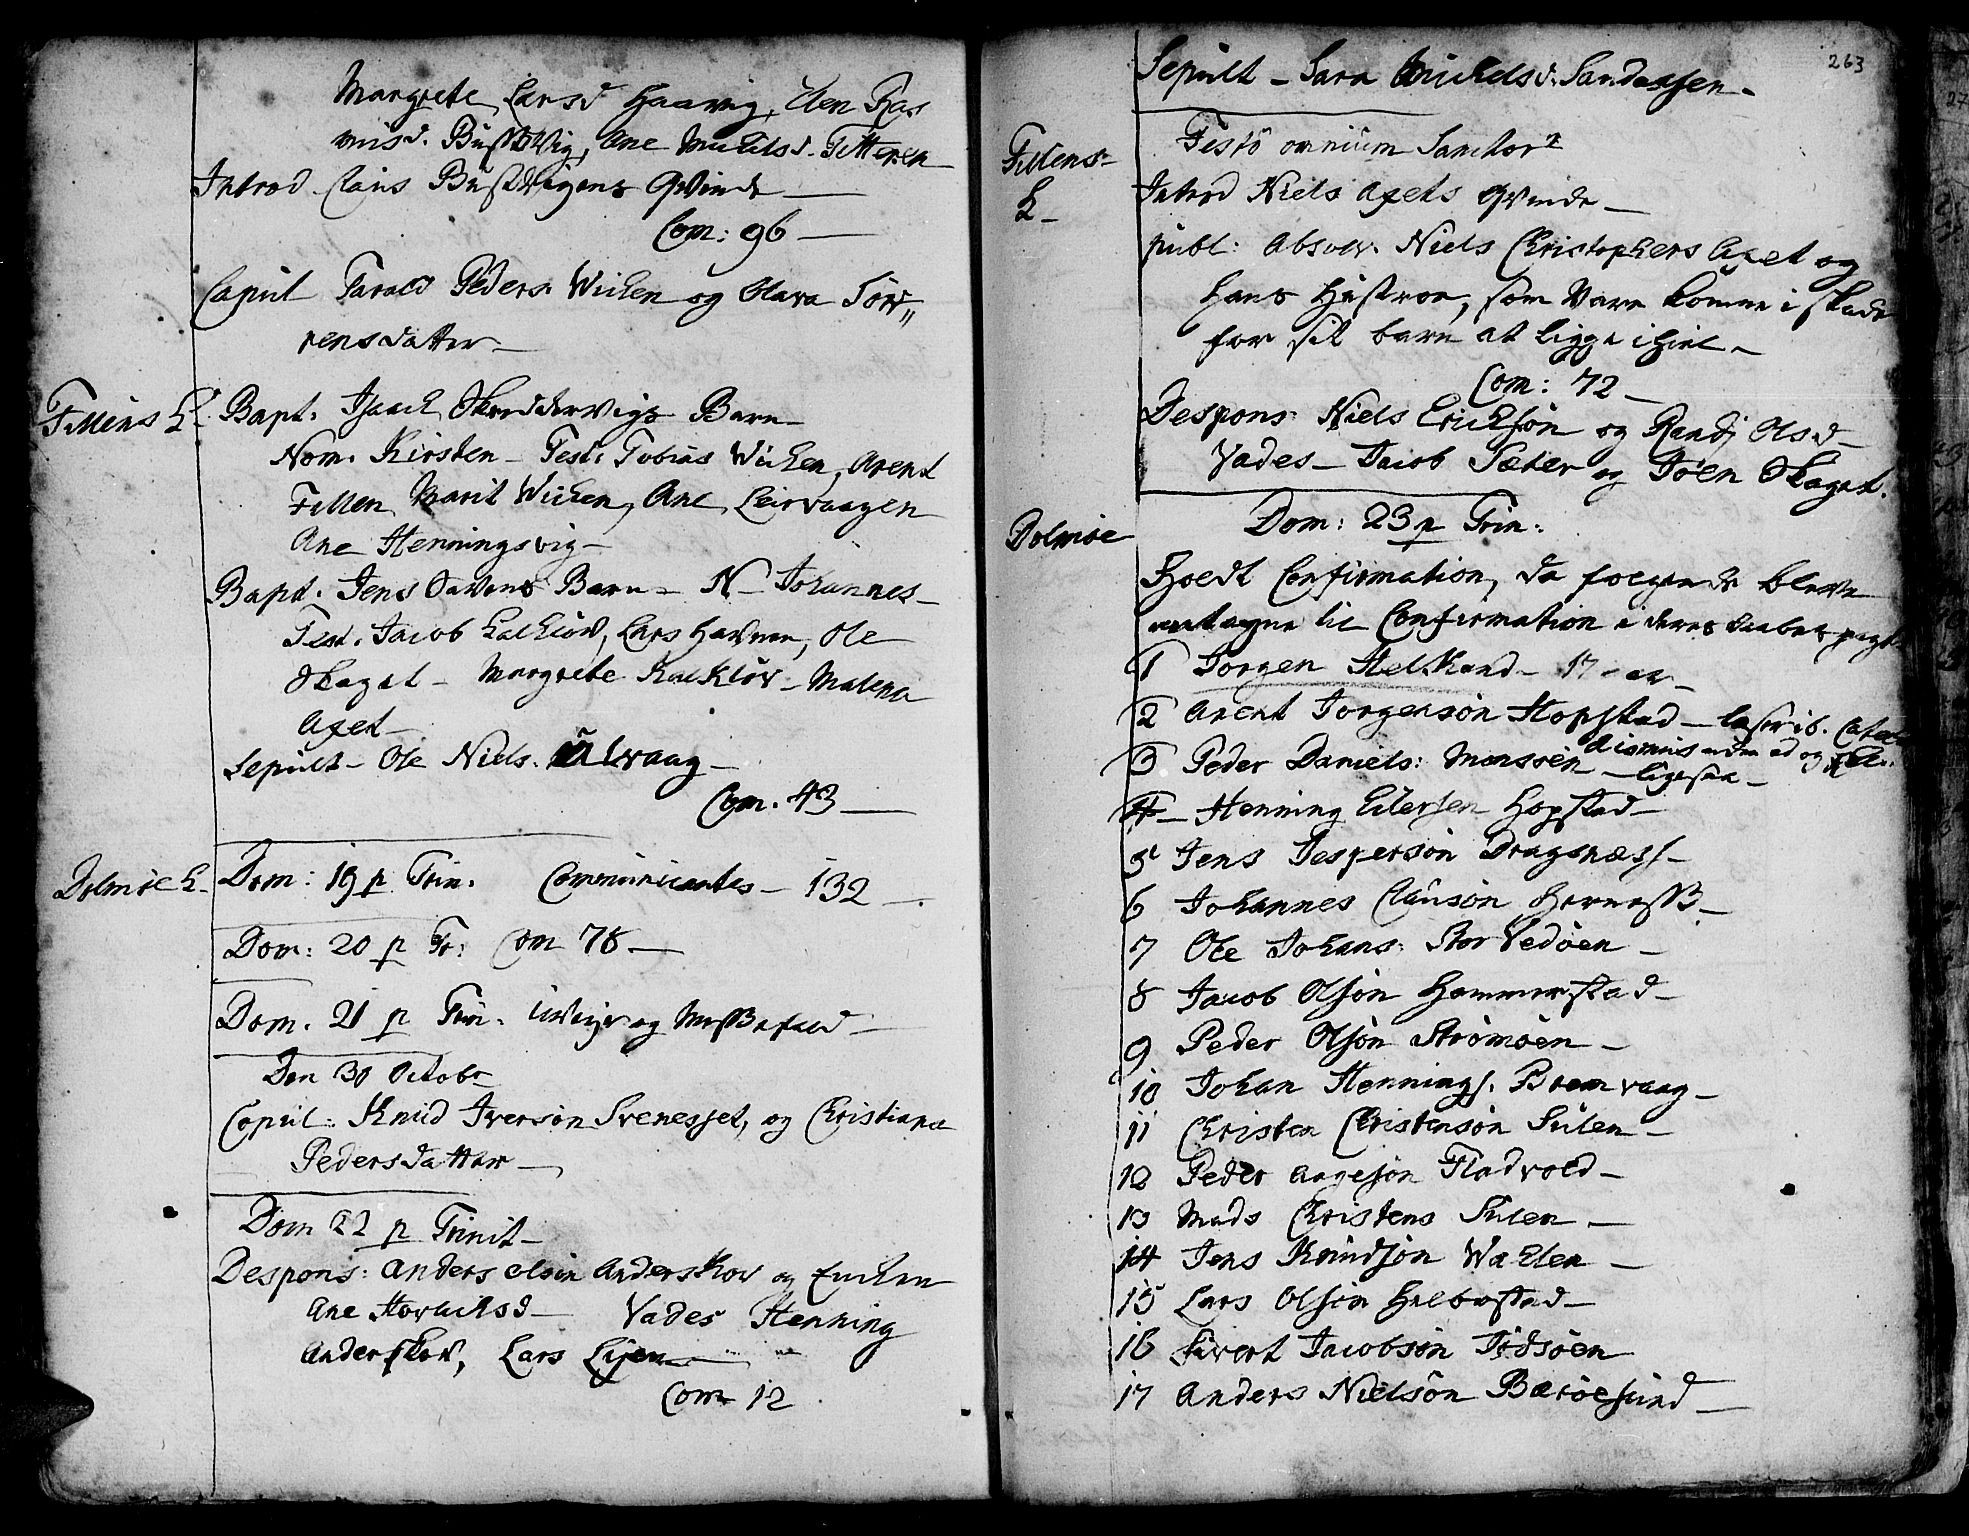 Margrete Larsd Haavig, Elen Ras
misd. Bustvig, Ane Michelsd. Fitteren
Introd. Claus Bustvigens Qvinde
Com: 96
Copul Farald Peders. Wichen og Olava Sör„
rensdatter
Fillens K. Bapt. Isach Skredderwigs Barn
Nom. Kirsten - Test. Tobias Wichen, Arent
Fillen, Marit Wichen, Ane Leirvaagen
Ane Henningsvig
Bapt. Jens Barn - N - Johannes
Test. Jacob Kalkløv, Lars Havnen, Ole
Skaget - Margrete Kalkløv - Malena
Axet
Sepult - Ole Niels. Ulvaag
Com. 43
Dolmöe K. Dom: 19 p Trin. Communicantes - 132
Dom: 20 p Tr: Com 78
Dom. 21 p Trin. og Messefald
Den 30 Octobr
Copul: Knud Iversön Svenesset, og Christiana
Pedersdatter
Dom 22 p Trinit
Despons: Anders olsön Anderskov og Enchen
Ane Vades Henning
Anderskov, Lars
Com 12
263
Sepult - Sara Michelsd: Sandassen
Fillens
K
Festo omnium Sanctor
Introd Niels Axets Qvinde
publ: Absolv. Niels Christophers Axet og
hans Hustroe, som vare komne i skade
for sit barn at ligge ihiel
Com: 72
Despons: Niels Erichsön og Randj Olsd
Vades - Jacob Sæter og Joen Skaget.
Dolmöe
Dom: 23 p Trin:
Hoedt Confirmation, da folgende bleve
antagne til Confirmation i deres daabes pagt
1 Jorgen Helskand - 17 - ar
2 Arent Jorgensön Hopstad
3 Peder Daniels: Monssön - ligesaa
4 Henning Eilersen Hopstad
5 Jens Jespersön Dragsnæss
6 Johannes Clausön Herness
7 Ole Johans: Stor Vedöen
8 Jacob Olsön Hammerstad
9 Peder Olsön Strömöen
10 Johan Hennings. Bremvaag
11 Christen Christensön Sulen
12 Peder Aagesön Fladvold
13 Mads Christens Sulen
14 Jens Knudsön Wahlen
15 Lars Olsön Helbostad
16 Sivert Jacobsön Jödsöen
17 Anders Nielsön Baröesund